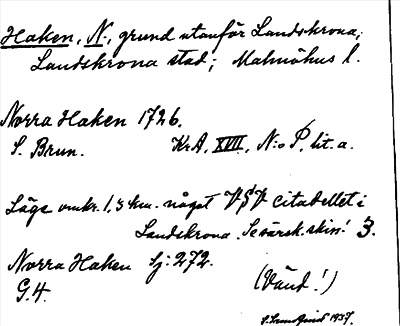 Haken, N:, grund utanför Landskrona;
Landskrona stad; Malmöhus l.
Norra Haken 1726.
S. Brun. KrA, XVIII, N:o P, lit. a.
Läge omkr. 1,5 km. något VSV citadellet i
Landskrona. Se särsk. skin! 3.
Norra Haken Sj: 272.
G.4. (Vänd!)
1937.